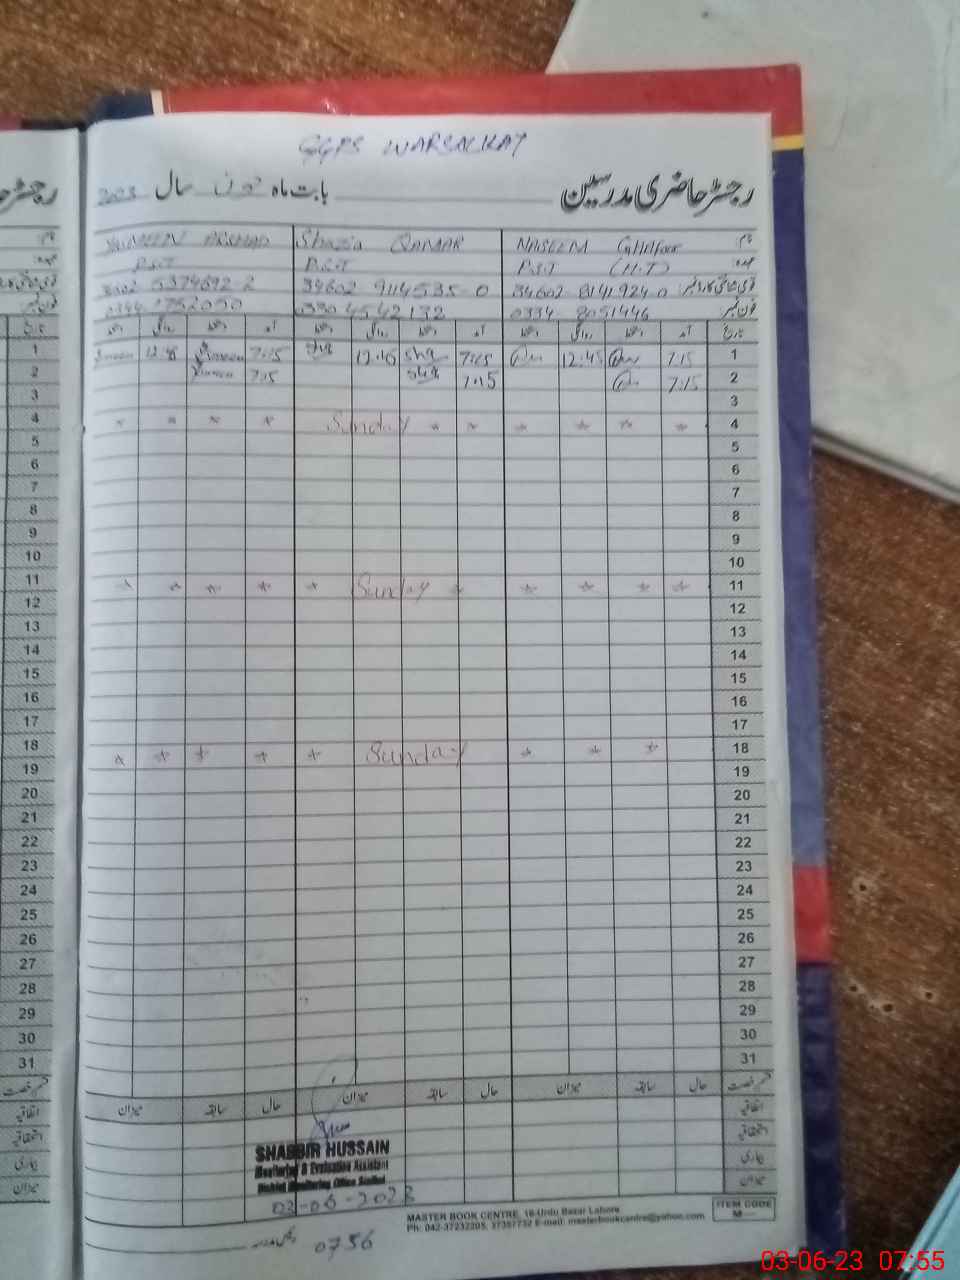 GGPS WARSALKAY
رجسٹر حاضری مدرسین بابت ماہ جون سال 2023
نام NASEEM Ghafoor Shazia QAMAR ARSHAD
عہدہ P.S.T (H.T) P.S.T P.S.T
34602-8141924-0 34602 9114535-0 5374692 2
فون نمبر 0334 8051446 0304542132 0344 1752050
تاریخ آمد دستخط روانگی دستخط آمد دستخط روانگی دستخط آمد دستخط روانگی دستخط
1 7:15 12:45 7:15 Sha 12:45 7:15 12:45
2 7:15 7:15 7:15
3
4 Sunday
5
6
7
8
9
10
11 Sunday
12
13
14
15
16
17
18 Sunday
19
20
21
22
23
24
25
26
27
28
29
30
31
رخصت حال سابقہ میزان حال سابقہ میزان حال سابقہ میزان
اتفاقیہ
استحقاقیہ
بیماری
میزان
SHABBIR HUSSAIN
Monitoring & Evaluation Assistant
District Monitoring Office Sialkot
03-06-2023
0756
MASTER BOOK CENTRE, 18-Urdu Bazar Lahore
Ph: 042-37232205, 37357732 E-mail: masterbookcentre@yahoo.com
ITEM CODE
M
03-06-23 07:55